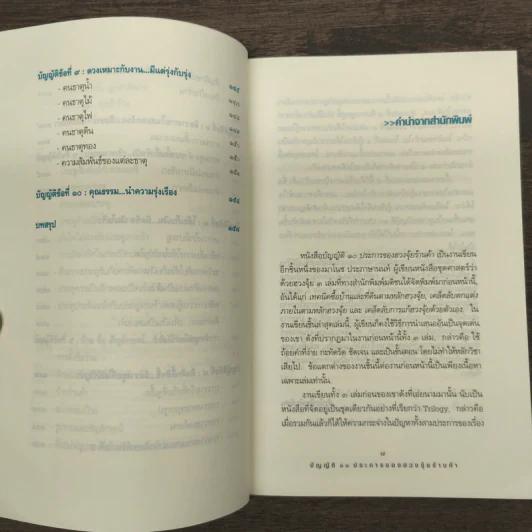 บัญญัติข้อที่ ๙ : ดวงเหมาะกับงาน...มีแต่รุ่งกับรุ่ง ๑๔๕
- คนธาตุน้ำ
- คนธาตุไม้
- คนธาตุไฟ
- คนธาตุดิน
- คนธาตุทอง
- ความสัมพันธ์ของแต่ละธาตุ
บัญญัติข้อที่ ๑๐ : คุณธรรม...นำความรุ่งเรือง ๑๕๔
บทสรุป ๑๕๘
>>คำนำจากสำนักพิมพ์
หนังสือบัญญัติ ๑๐ ประการของฮวงจุ้ยร้านค้า เป็นงานเขียน
อีกชิ้นหนึ่งของมาโนช ประภาษานนท์ ผู้เขียนหนังสือชุดศาสตร์ว่า
ด้วยฮวงจุ้ย ๓ เล่มที่ทางสำนักพิมพ์มติชนได้จัดพิมพ์มาก่อนหน้านี้,
อันได้แก่ เทคนิคซื้อบ้านและที่ดินตามหลักฮวงจุ้ย, เคล็ดลับตกแต่ง
ภายในตามหลักฮวงจุ้ย และ เคล็ดลับการแก้ฮวงจุ้ยด้วยตัวเอง ใน
งานเขียนชิ้นล่าสุดเล่มนี้, ผู้เขียนก็คงใช้วิธีการนำเสนออันเป็นจุดเด่น
ของเขา ดังที่ปรากฏมาในงานก่อนหน้านี้ทั้ง ๓ เล่ม, กล่าวคือ ใช้
ถ้อยคำที่ง่าย กะทัดรัด ชัดเจน และเป็นขั้นตอน โดยไม่ทำให้หลักวิชา
เสียไป ข้อแตกต่างของงานชิ้นนี้ต่องานก่อนหน้านี้ก็เป็นเพียงเนื้อหา
เฉพาะเล่มเท่านั้น
งานเขียนทั้ง ๓ เล่มก่อนของเขาดังที่เอ่ยนามมานั้น นับเป็น
หนังสือที่จัดอยู่เป็นชุดเดียวกันอย่างที่เรียกว่า Trilogy, กล่าวคือ
เมื่อรวมกันแล้วก็ได้ให้ความกระจ่างในปัญหาทั้งสามประการของเรื่อง
๗
บัญญัติ ๑๐ ประการของฮวงจุ้ยร้านค้า